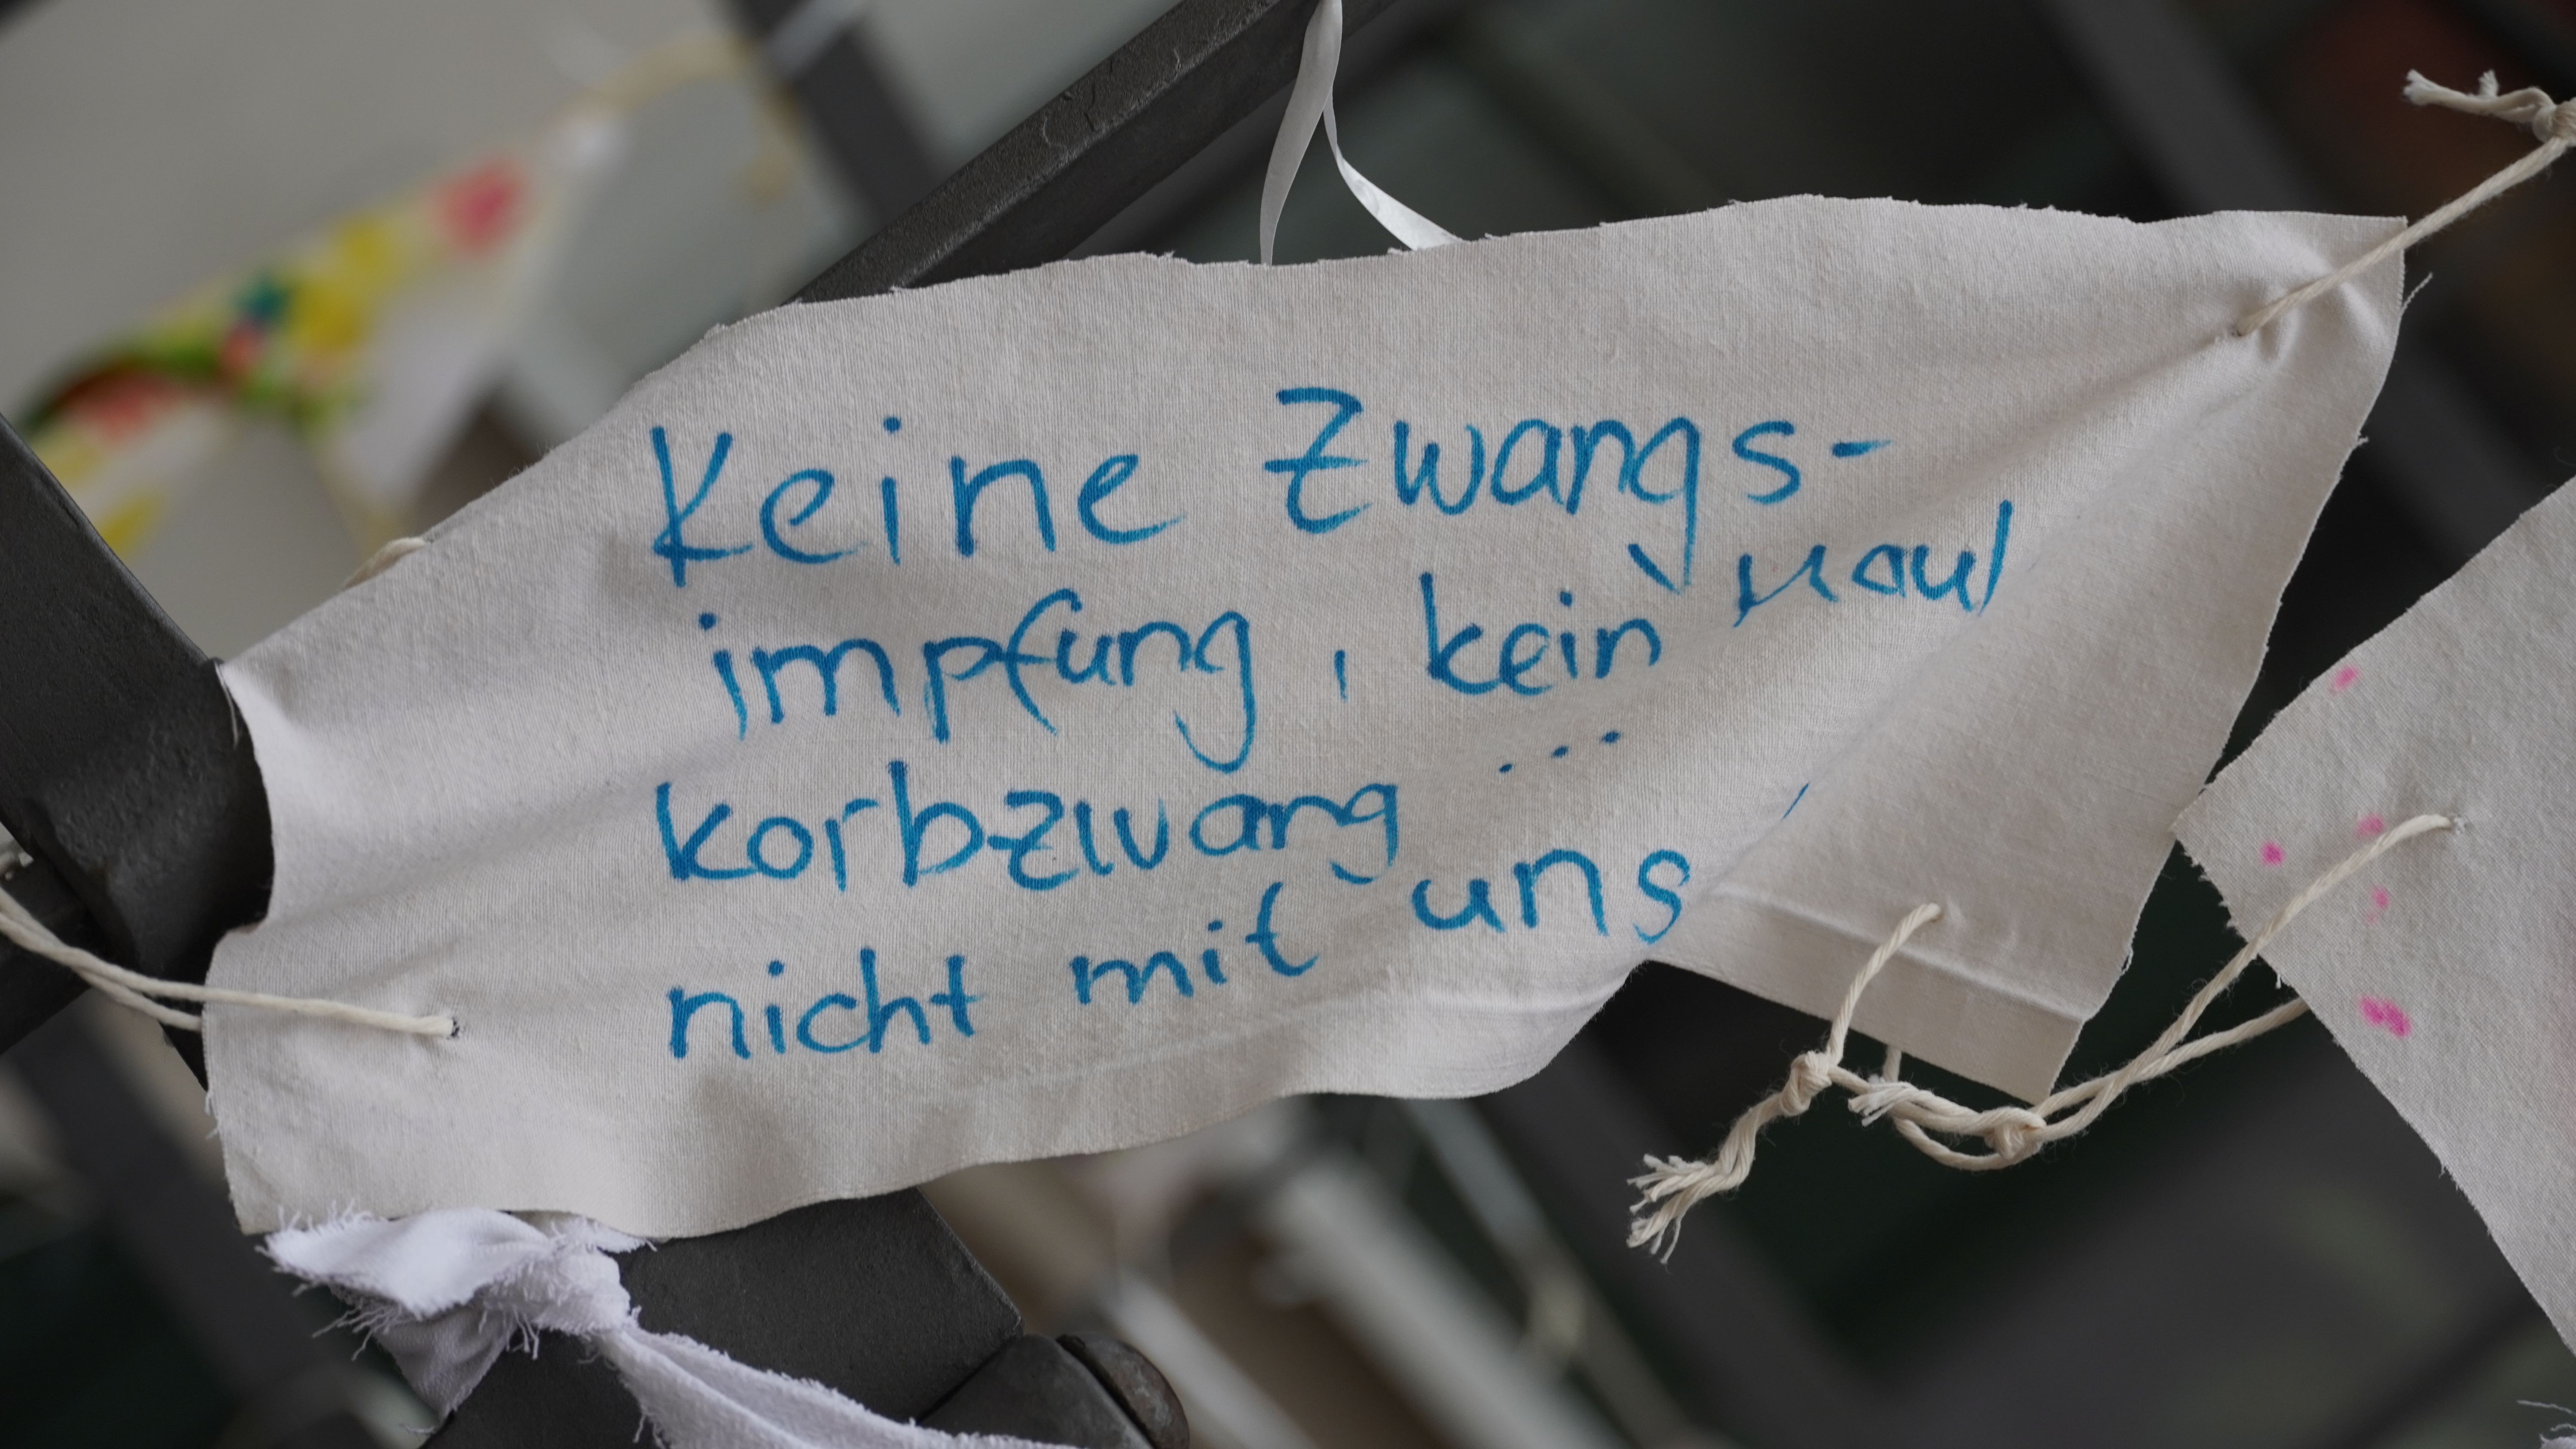 Keine Zwangs-
impfung, kein Maul
korbzwang ...
nicht mit uns